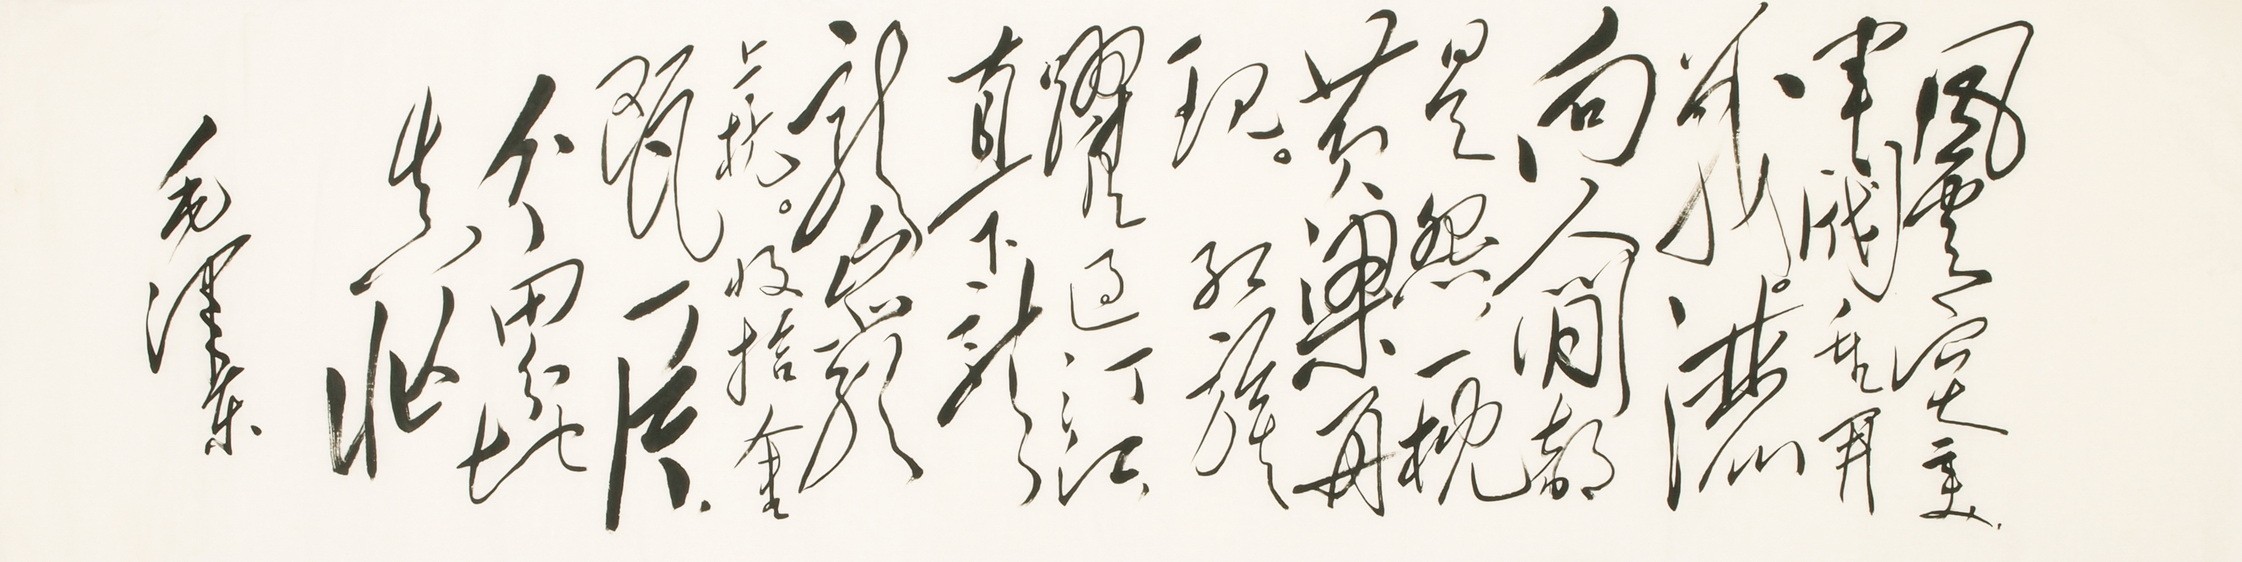 風雲突变，
軍閥重开
戰。灑
向人间都
是怨，一枕
黄粱再
现。红旗
躍过汀江，
直下龍
龍巖
上杭。收拾金
甌一片，
分田分地
真忙
毛澤东